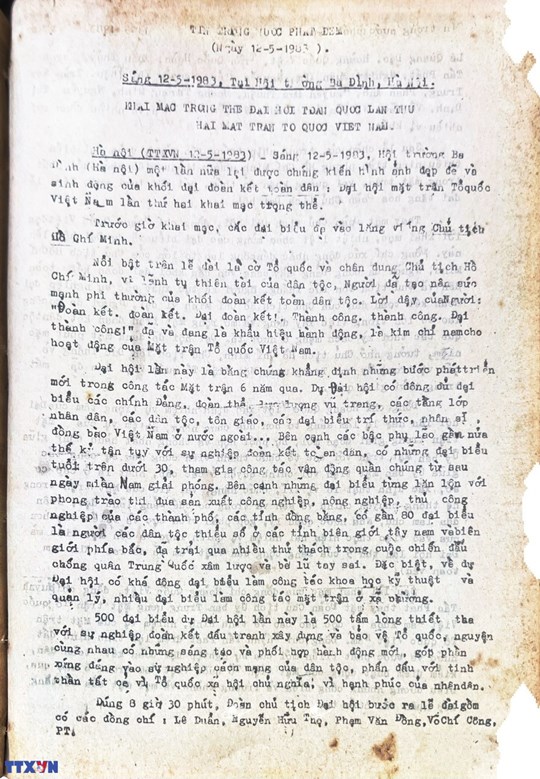 TIN TRONG NƯỚC PHÁT ĐÊM
(Ngày 12-5-1983 ).
Sáng 12-5-1983, Tại Hội trường Ba Đình, Hà Nội.
KHAI MẠC TRỌNG THỂ ĐẠI HỘI TOÀN QUỐC LẦN THỨ
HAI MẶT TRẬN TỔ QUỐC VIỆT NAM.
Hà nội (TTXVN 12-5-1983) - Sáng 12-5-1983, Hội trường Ba
Đình (Hà nội) một lần nữa lại được chứng kiến hình ảnh đẹp đẽ và
sinh động của khối đại đoàn kết toàn dân : Đại hội mặt trận Tổquốc
Việt Nam lần thứ hai khai mạc trọng thể.
Trước giờ khai mạc, các đại biểu đã vào lăng viếng Chủ tịch
Hồ Chí Minh.
Nổi bật trên lễ đài là cờ Tổ quốc và chân dung Chủ tịch Hồ
Chí Minh, vị lãnh tụ thiên tài của dân tộc, Người đã tạo nên sức
mạnh phi thường của khối đoàn kết toàn dân tộc. Lời dạy củaNgười:
"Đoàn kết. đoàn kết. Đại đoàn kết!. Thành công, thành công. Đại
thành công!" đã và đang là khẩu hiệu hành động, là kim chỉ namcho
hoạt động của Mặt trận Tổ quốc Việt Nam.
Đại hội lần này là bằng chứng khẳng định những bước pháttriển
mới trong công tác Mặt trận 6 năm qua. Dự Đại hội có đông đủ đại
biểu các chính Đảng, đoàn thể lực lượng vũ trang, các tầng lớp
nhân dân, các dân tộc, tôn giáo, các đại biểu trí thức, nhân sĩ
đồng bào Việt Nam ở nước ngoài... Bên cạnh các bậc phụ lão gần nửa
thế kỉ tận tụy với sự nghiệp đoàn kết toàn dân, có những đại biểu
tuổi trên dưới 30, tham gia công tác vận động quần chúng từ sau
ngày miền Nam giải phóng. Bên cạnh những đại biểu từng lăn lộn với
phong trào thi đua sản xuất công nghiệp, nông nghiệp, thủ công
nghiệp của các thành phố, các tỉnh đồng bằng, có gần 80 đại biểu
là người các dân tộc thiểu số ở các tỉnh biên giới tây nam vàbiên
giới phía bắc, đã trải qua nhiều thử thách trong cuộc chiến đấu
chống quân Trung Quốc xâm lược và bè lũ tay sai. Đặc biệt, về dự
Đại hội có khá đông đại biểu làm công tác khoa học kỹ thuật và
quản lý, nhiều đại biểu làm công tác mặt trận ở xã phường.
500 đại biểu dự Đại hội lần này là 500 tấm lòng thiết tha
với sự nghiệp đoàn kết đấu tranh xây dựng và bảo vệ Tổ quốc, nguyện
cùng nhau có những sáng tạo và phối hợp hành động mới, góp phần
xứng đáng vào sự nghiệp cách mạng của dân tộc, phấn đấu với tinh
thần tất cả vì Tổ quốc xã hội chủ nghĩa, vì hạnh phúc của nhândân.
Đúng 8 giờ 30 phút, Đoàn chủ tịch Đại hội bước ra lễ đàigồm
có các đồng chí : Lê Duẩn, Nguyễn Hữu Thọ, Phạm Văn Đồng,Võ Chí Công,
PT.
TTXVN